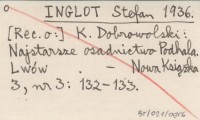 INGLOT Stefan 1936.
[Rec. o:] K. Dobrowolski:
Najstarsze osadnictwo Podhala.
Lwów. – Nowa Książka
3, nr 3: 132-133.